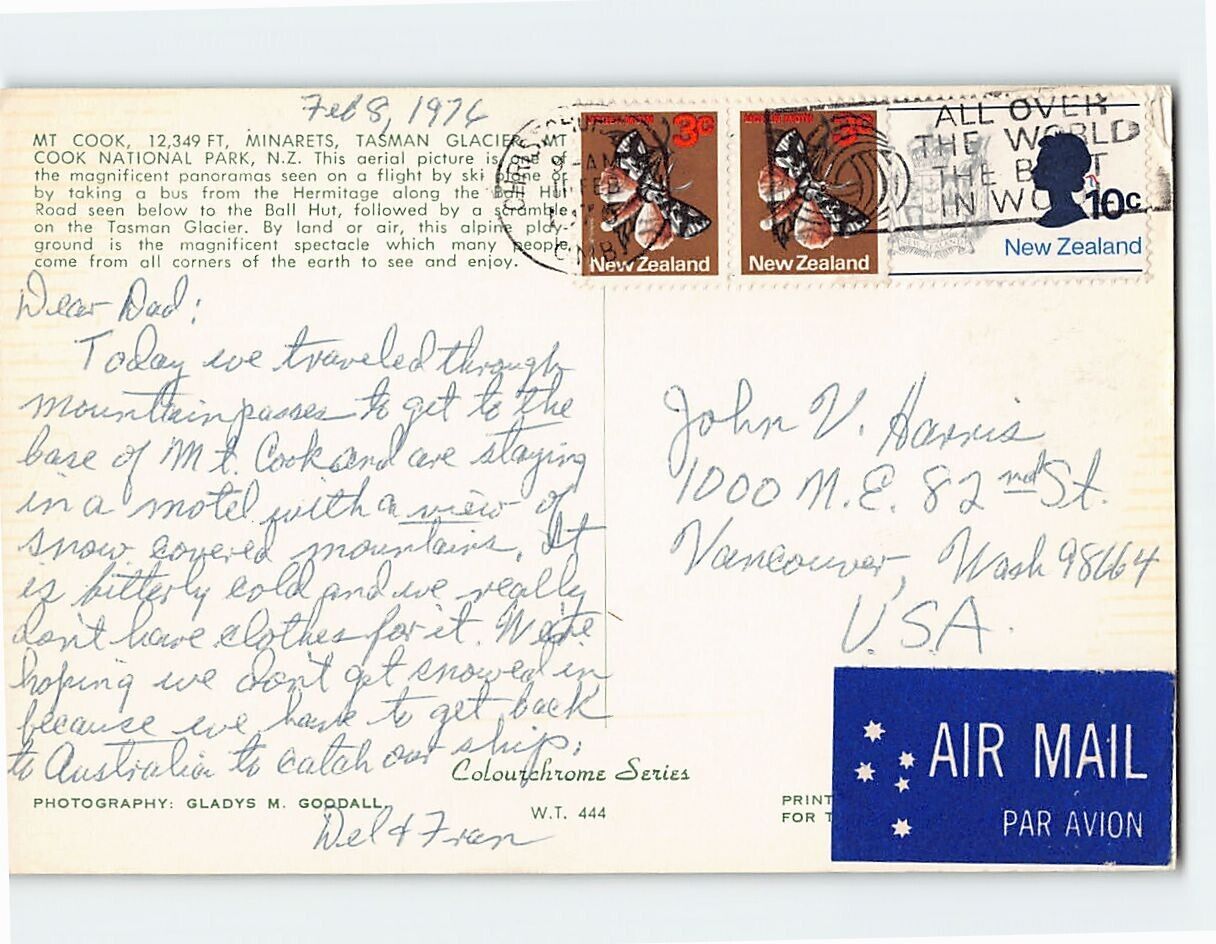 Feb 8, 1976
MT COOK, 12,349 FT, MINARETS, TASMAN GLACIER, MT
COOK NATIONAL PARK, N.Z. This aerial picture is one of
the magnificent panoramas seen on a flight by ski plane or
by taking a bus from the Hermitage along the Ball Hut
Road seen below to the Ball Hut, followed by a scramble
on the Tasman Glacier. By land or air, this alpine play-
ground is the magnificent spectacle which many people
come from all corners of the earth to see and enjoy.
3c
New Zealand
3c
New Zealand
10c
New Zealand
9-AM
11 FEB
ALL OVER
THE WORLD
THE BEST
IN WO
Dear Dad:
Today we traveled through
mountain passes to get to the
base of Mt. Cook and are staying
in a motel with a view of
snow covered mountains. It
is bitterly cold and we really
don't have clothes for it. We're
hoping we don't get snowed in
because we have to get back
to Australia to catch our ship.
Del & Fran
John V. Harris
1000 N.E. 82nd St.
Vancouver, Wash 98664
U.S.A.
Colourchrome Series
PHOTOGRAPHY: GLADYS M. GOODALL.
W.T. 444
PRINT
FOR T
AIR MAIL
PAR AVION